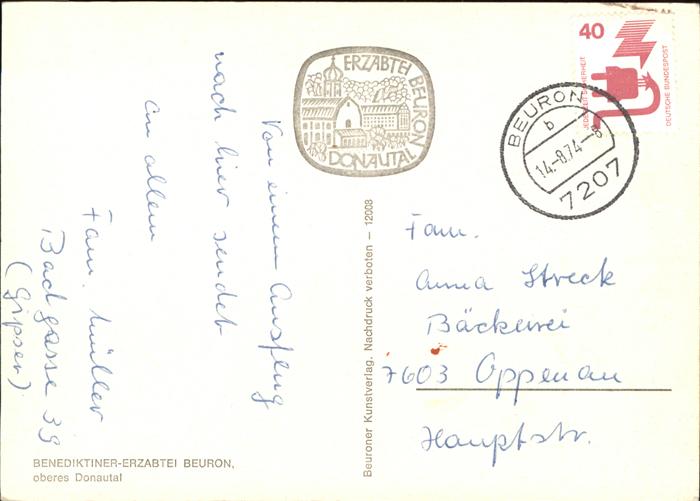 ERZABTEI BEURON
DONAUTAL
40
JEDERZEIT SICHERHEIT
DEUTSCHE BUNDESPOST
BEURON
b
14.-8.74-8
7207
Von einem Ausflug
nach hier sendet
an allem
Fam. Müller
Bachgasse 39
(Gipser)
Fam.
Anna Streck
Bäckerei
7603 Oppenau
Hauptstr.
Beuroner Kunstverlag. Nachdruck verboten – 12008
BENEDIKTINER-ERZABTEI BEURON,
oberes Donautal